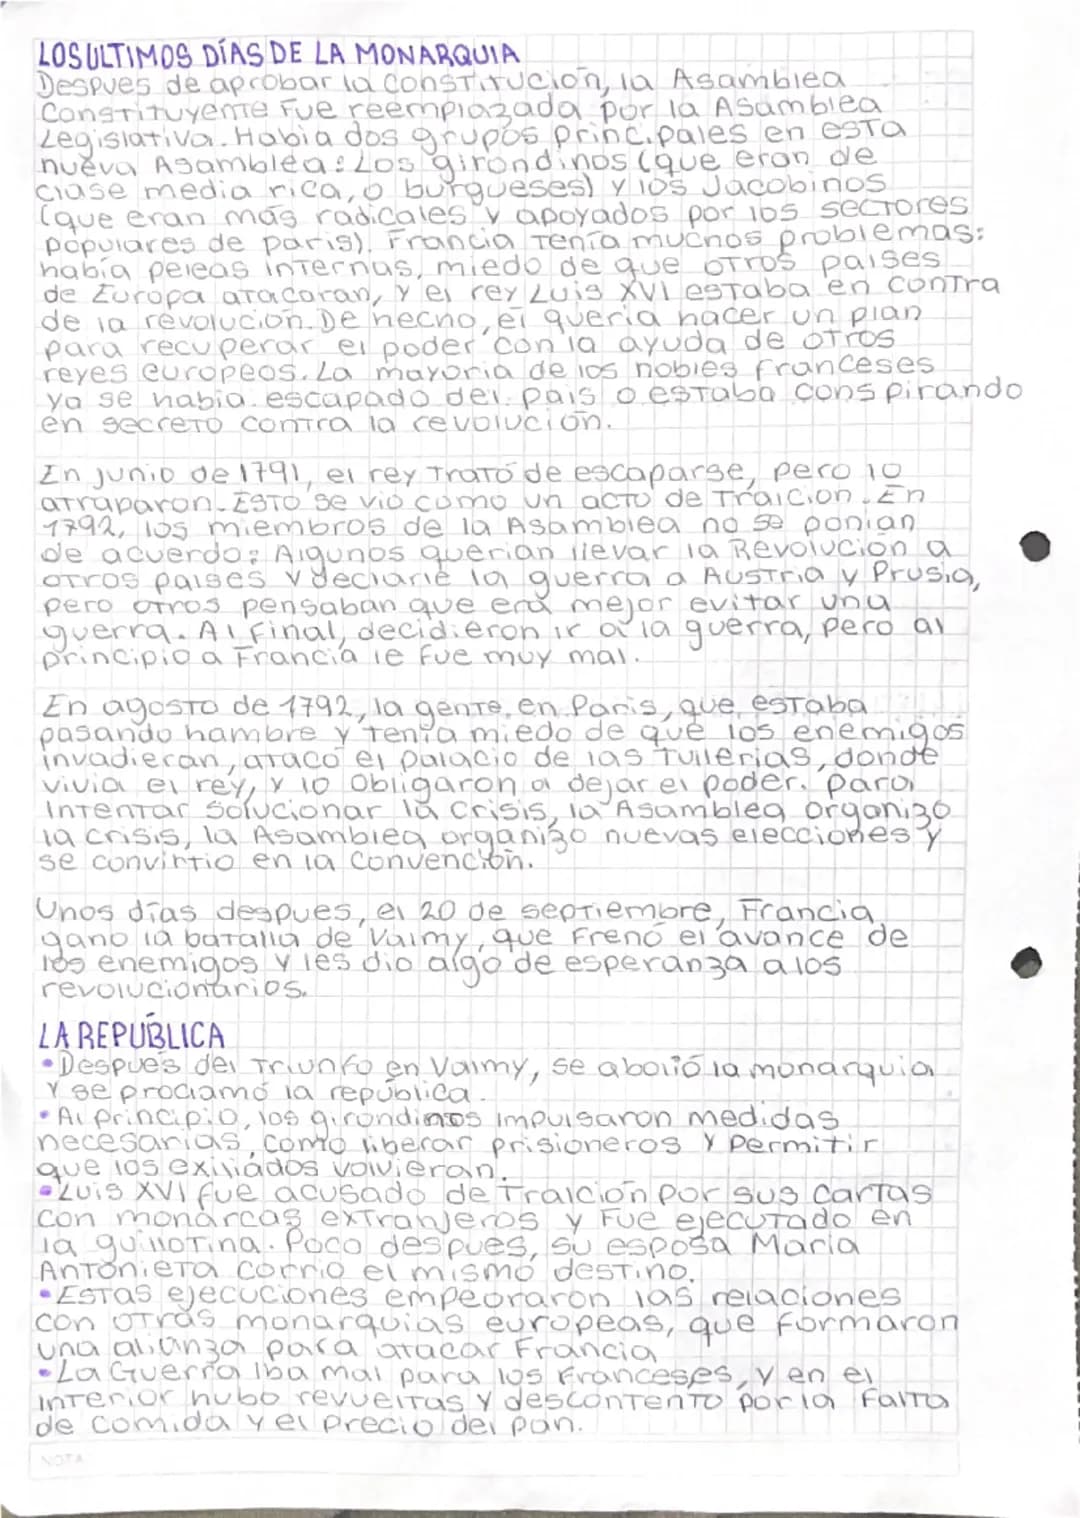 LOS ULTIMOS DÍAS DE LA MONARQUIA
Despues de aprobar la constitución, la Asamblea
Constituyente fue reemplazada por la Asamblea
Legislativa. Habia dos grupos principales en esta
nueva Asamblea: Los girondinos (que eran de
clase media rica, o burgueses) y los Jacobinos
(que eran más radicales y apoyados por los sectores
populares de paris). Francia tenía muchos problemas:
había peleas internas, miedo de que otros paises
de Europa atacaran, y el rey Luis XVI estaba en contra
de la revolución. De hecho, el queria hacer un plan
para recuperar el poder con la ayuda de otros
reyes europeos. La mayoria de los nobles franceses
ya se habia escapado del pais o estaba conspirando
en secreto contra la revolución.
En junio de 1791, el rey trató de escaparse, pero lo
atraparon. Esto se vio como un acto de traicion. En
1792, los miembros de la Asamblea no se ponian
de acuerdo: Algunos querian llevar la Revolución a
otros paises y declarle la guerra a Austria y Prusia,
pero otros pensaban que era mejor evitar una
guerra. Al final, decidieron ir a la guerra, pero al
principio a Francia le fue muy mal.
En agosto de 1792, la gente en Paris, que estaba
pasando hambre y tenía miedo de que los enemigos
invadieran, atacó el palacio de las tullerias, donde
vivia el rey, y lo obligaron a dejar el poder. Para
intentar solucionar la crisis, la Asamblea organizo
la crisis, la Asamblea organizo nuevas elecciones y
se convirtio en la Convención.
Unos días despues, el 20 de septiembre, Francia
gano la batalla de Valmy, que frenó el avance de
los enemigos y les dio algo de esperanza a los
revolucionarios.
LA REPÚBLICA
•Después del triunfo en Valmy, se abolió la monarquia
y se proclamó la república.
•Al principio, los girondinos impulsaron medidas
necesarias, como liberar prisioneros y permitir
que los exiliados volvieran.
•Luis XVI fue acusado de traición por sus cartas
con monarcas extranjeros y fue ejecutado en
la guillotina. Poco despues, su esposa Maria
Antonieta corrio el mismo destino.
•Estas ejecuciones empeoraron las relaciones
con otras monarquias europeas, que formaron
una alianza para atacar Francia
•La Guerra iba mal para los franceses, y en el
interior hubo revueltas y descontento por la falta
de comida y el precio del pan.
NOTA